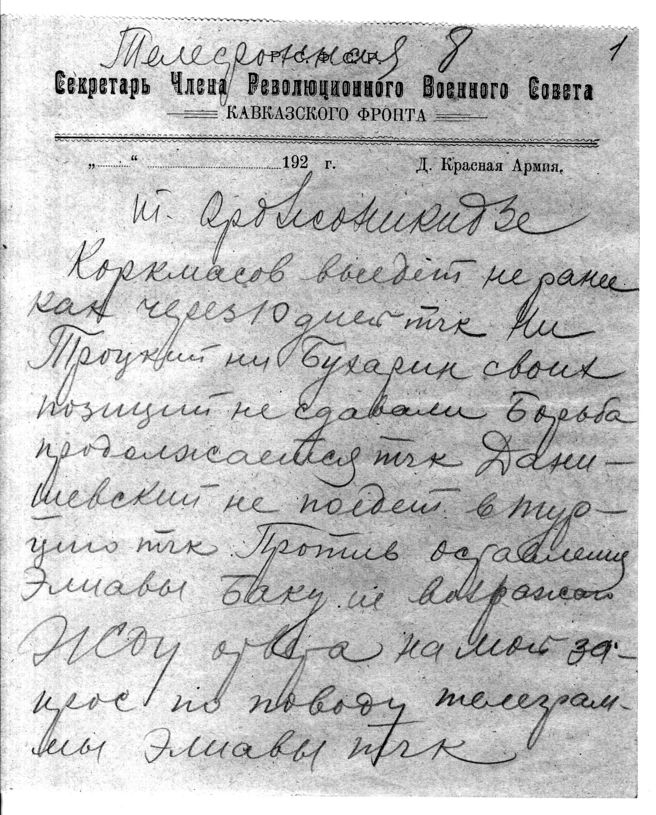 Телефонная 8 1
Р. С. Ф. С. Р.
Секретарь Члена Революционного Военного Совета
КАВКАЗСКОГО ФРОНТА
„ “ 192 г. Д. Красная Армия.
т. Орджоникидзе
Коркмасов выедет не ранее
как через 10 дней тчк Ни
Троцкий ни Бухарин своих
позиций не сдавали Борьба
продолжается тчк Дани-
шевский не поедет в Тур-
цию тчк Против оставления
Элиавы Баку не возражаю
Жду ответа на мой за-
прос по поводу телеграм-
мы Элиавы тчк